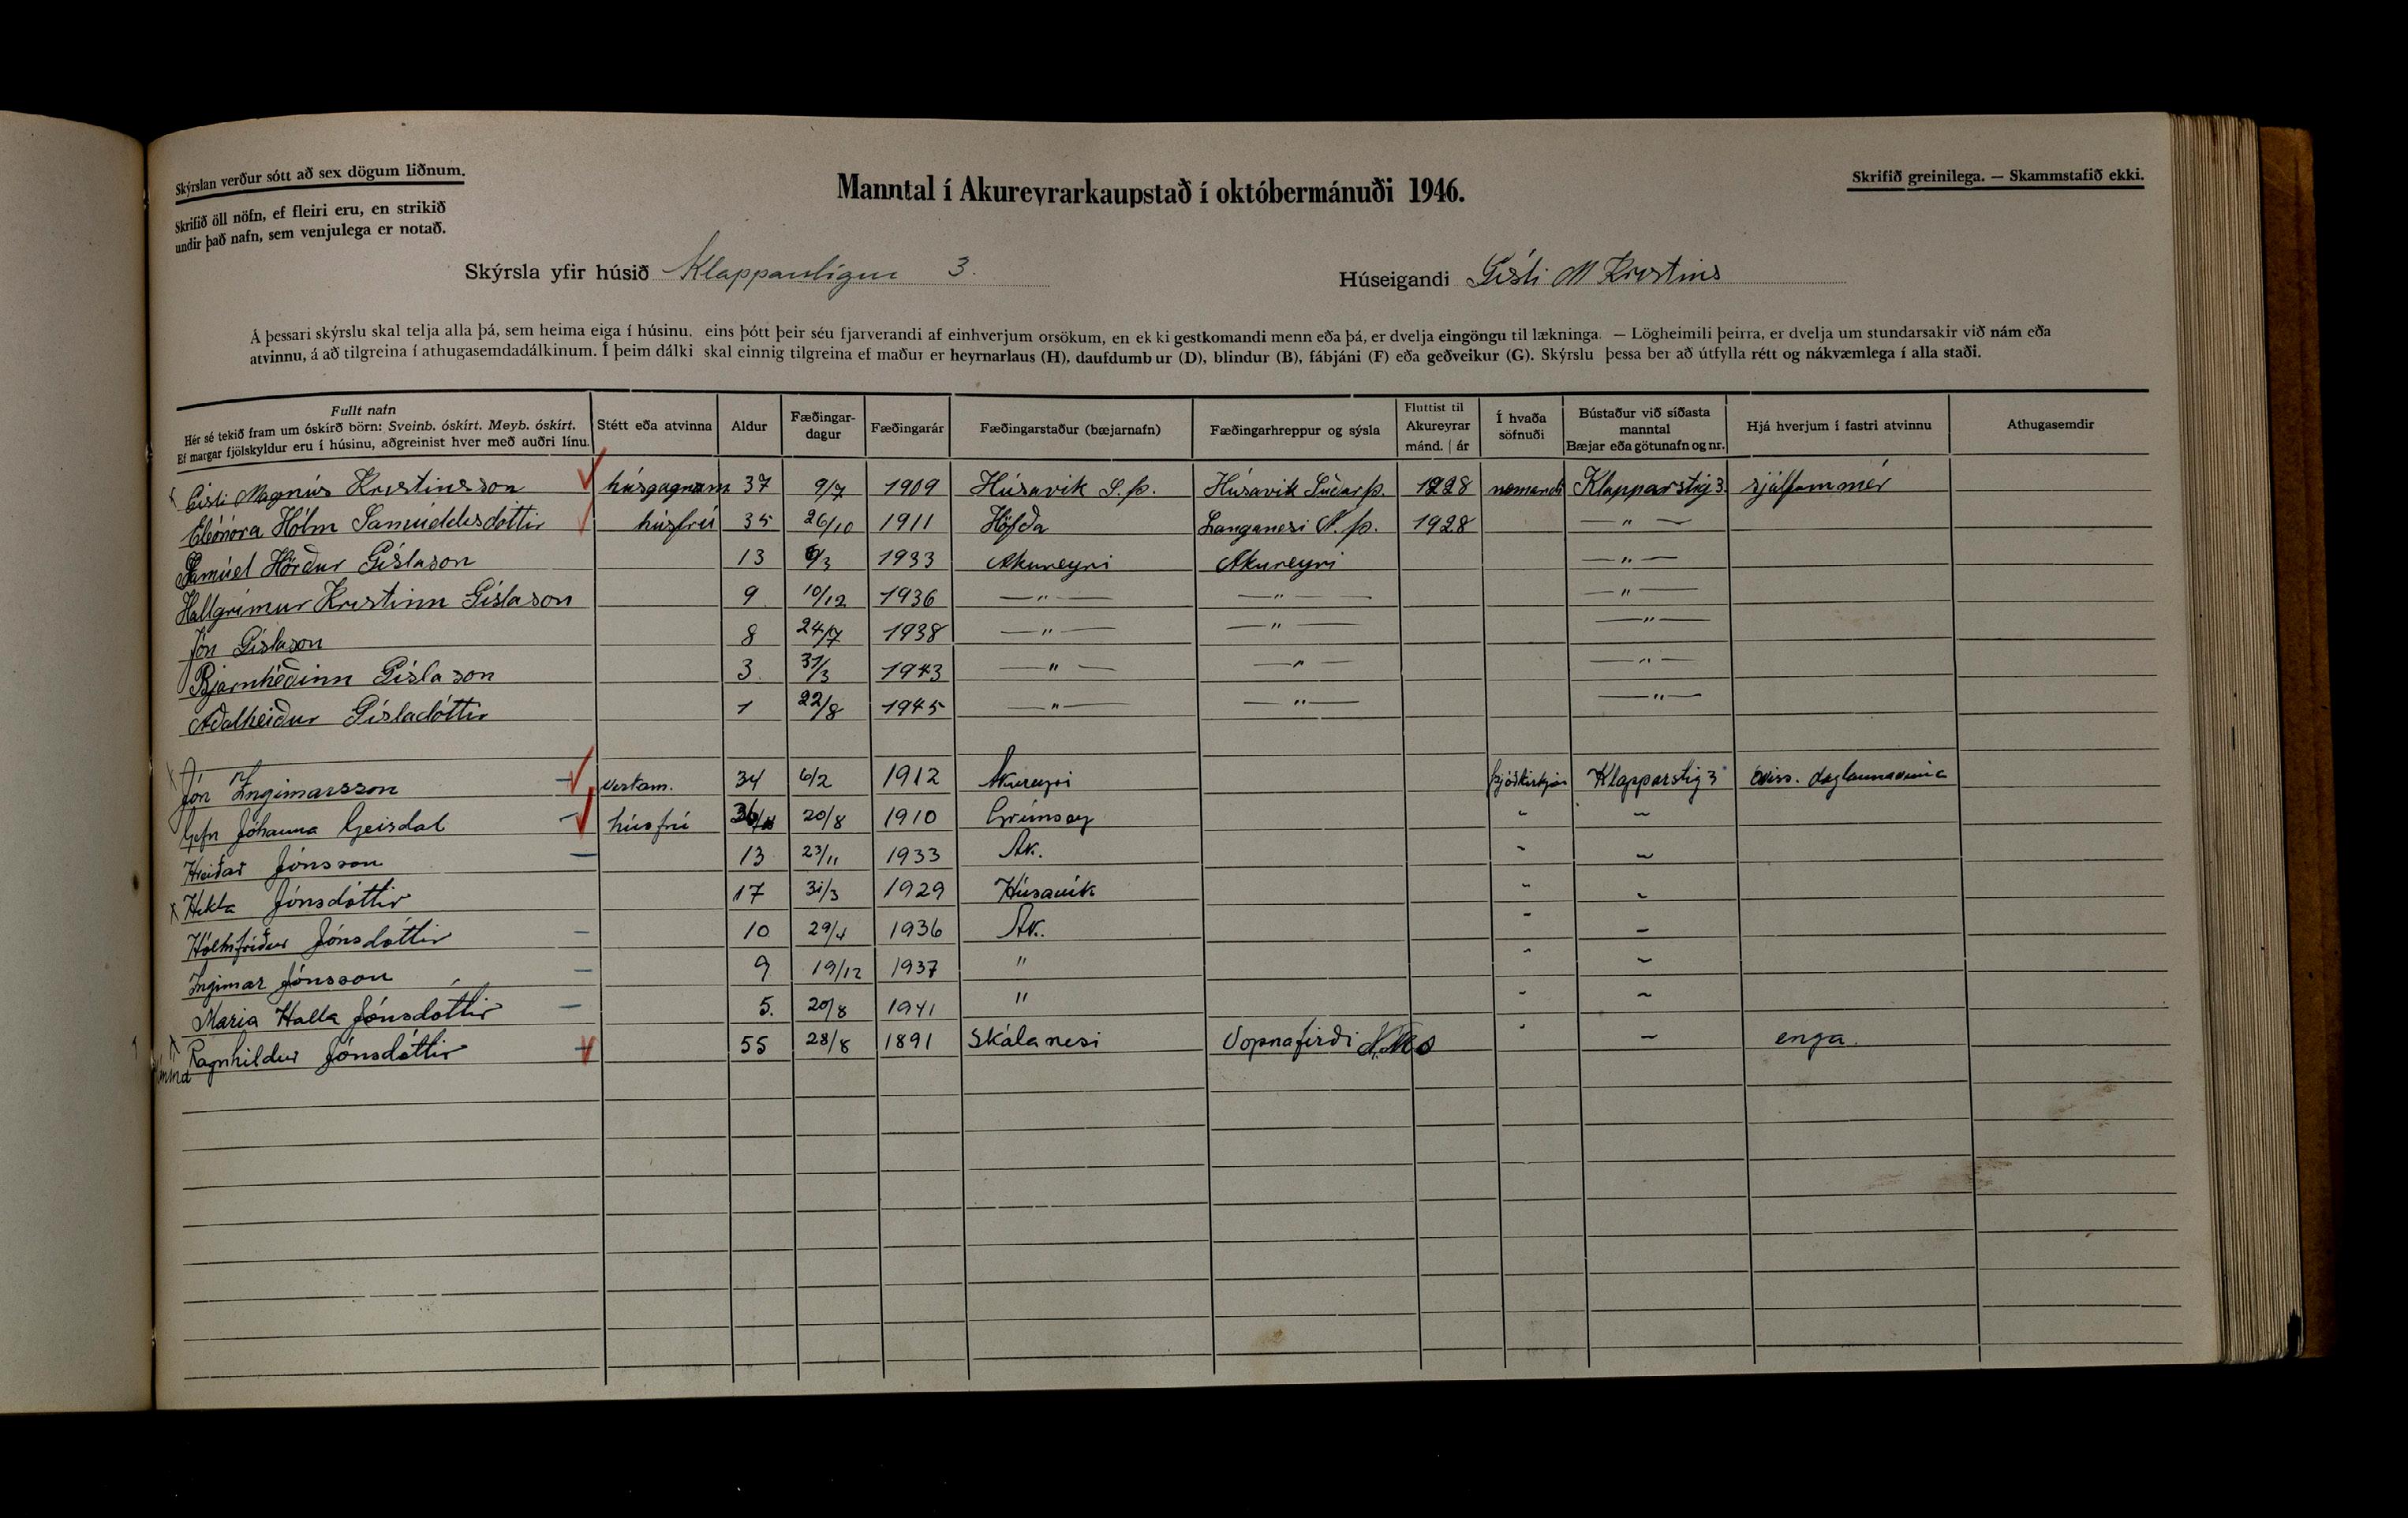 Skýrslan verður sótt að sex dögum liðnum.
Skrifið öll nöfn, ef fleiri eru, en strikið
undir það nafn, sem venjulega er notað.
Manntal í Akureyrarkaupstað í októbermánuði 1946.
Skrifið greinilega. — Skammstafið ekki.
Skýrsla yfir húsið Klapparstígur 3.
Húseigandi Gísli M Kristins
Á þessari skýrslu skal telja alla þá, sem heima eiga í húsinu, eins þótt þeir séu fjarverandi af einhverjum orsökum, en ekki gestkomandi menn eða þá, er dvelja eingöngu til lækninga. — Lögheimili þeirra, er dvelja um stundarsakir við nám eða
atvinnu, á að tilgreina í athugasemdadálkinum. Í þeim dálki skal einnig tilgreina ef maður er heyrnarlaus (H), daufdumbur (D), blindur (B), fábjáni (F) eða geðveikur (G). Skýrslu þessa ber að útfylla rétt og nákvæmlega í alla staði.
Fullt nafn
Hér sé tekið fram um óskírð börn: Sveinb. óskírt. Meyb. óskírt.
Ef margar fjölskyldur eru í húsinu, aðgreinist hver með auðri línu.
Stétt eða atvinna
Aldur
Fæðingar-
dagur
Fæðingarár
Fæðingarstaður (bæjarnafn)
Fæðingarhreppur og sýsla
Fluttist til
Akureyrar
mánd. | ár
Í hvaða
söfnuði
Bústaður við síðasta
manntal
Bæjar eða götunafn og nr.
Hjá hverjum í fastri atvinnu
Athugasemdir
Gísli Magnús Kristinsson húsgagnam 37 9/7 1909 Húsavík S. þ. Húsavík Suðurþ. 1928 Klapparstíg 3. sjálfum mér
Eleónora Hólm Samúelsdóttir húsfrú 35 26/10 1911 Höfða Langanesi N. þ. 1928 — " —
Samúel Hörður Gíslason 13 6/3 1933 Akureyri Akureyri — " —
Hallgrímur Kristinn Gíslason 9 10/12 1936 — " — — " — — " —
Jón Gíslason 8 24/7 1938 — " — — " — — " —
Bjarnhéðinn Gíslason 3. 31/3 1943 — " — — " — — " —
Aðalheiður Gísladóttir 1 22/8 1945 — " — — " — — " —
Jón Ingimarsson verkam. 34 6/2 1912 Akureyri þjóðkirkjan Klapparstíg 3 daglaunavinna
Gefn Jóhanna Geirdal húsfrú 36 20/8 1910 Grímsey " "
Hreiðar Jónsson 13 23/11 1933 Ak. " "
Hekla Jónsdóttir 17 31/3 1929 Húsavík " "
Hólmfríður Jónsdóttir 10 29/4 1936 Ak. " "
Ingimar Jónsson 9 19/12 1937 " " "
Maria Halla Jónsdóttir 5. 20/8 1941 " " "
Ragnhildur Jónsdóttir 55 28/8 1891 Skálanesi Vopnafirði " " enga.